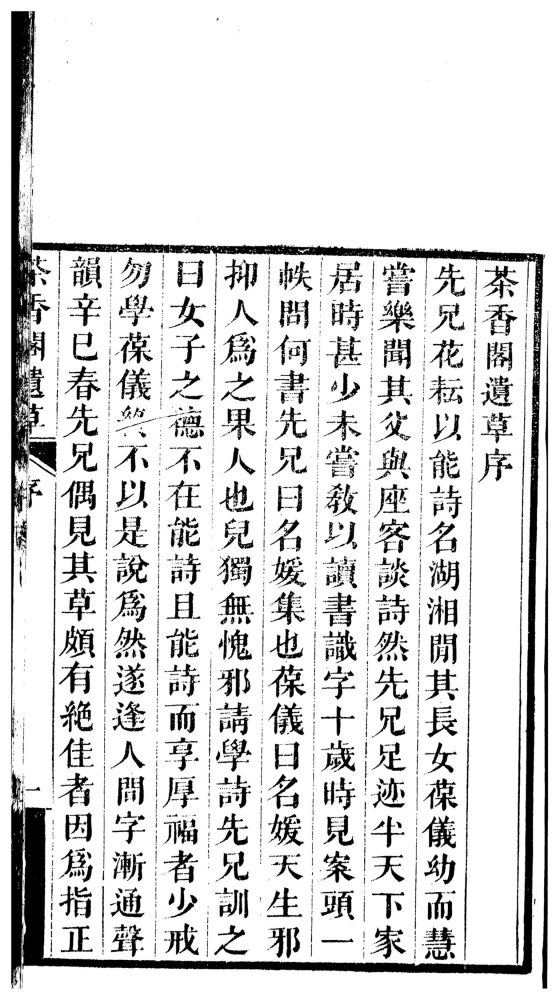 茶香閣遺草序
先兄花耘以能詩名湖湘閒其長女葆儀幼而慧
嘗樂聞其父與座客談詩然先兄足迹半天下家
居時甚少未嘗敎以讀書識字十歲時見案頭一
帙問何書先兄曰名媛集也葆儀曰名媛天生邪
抑人爲之果人也兒獨無愧邪請學詩先兄訓之
曰女子之德不在能詩且能詩而享厚福者少戒
勿學葆儀不以是說爲然遂逢人問字漸通聲
韻辛巳春先兄偶見其草頗有絶佳者因爲指正
茶香閣遺草
序
一